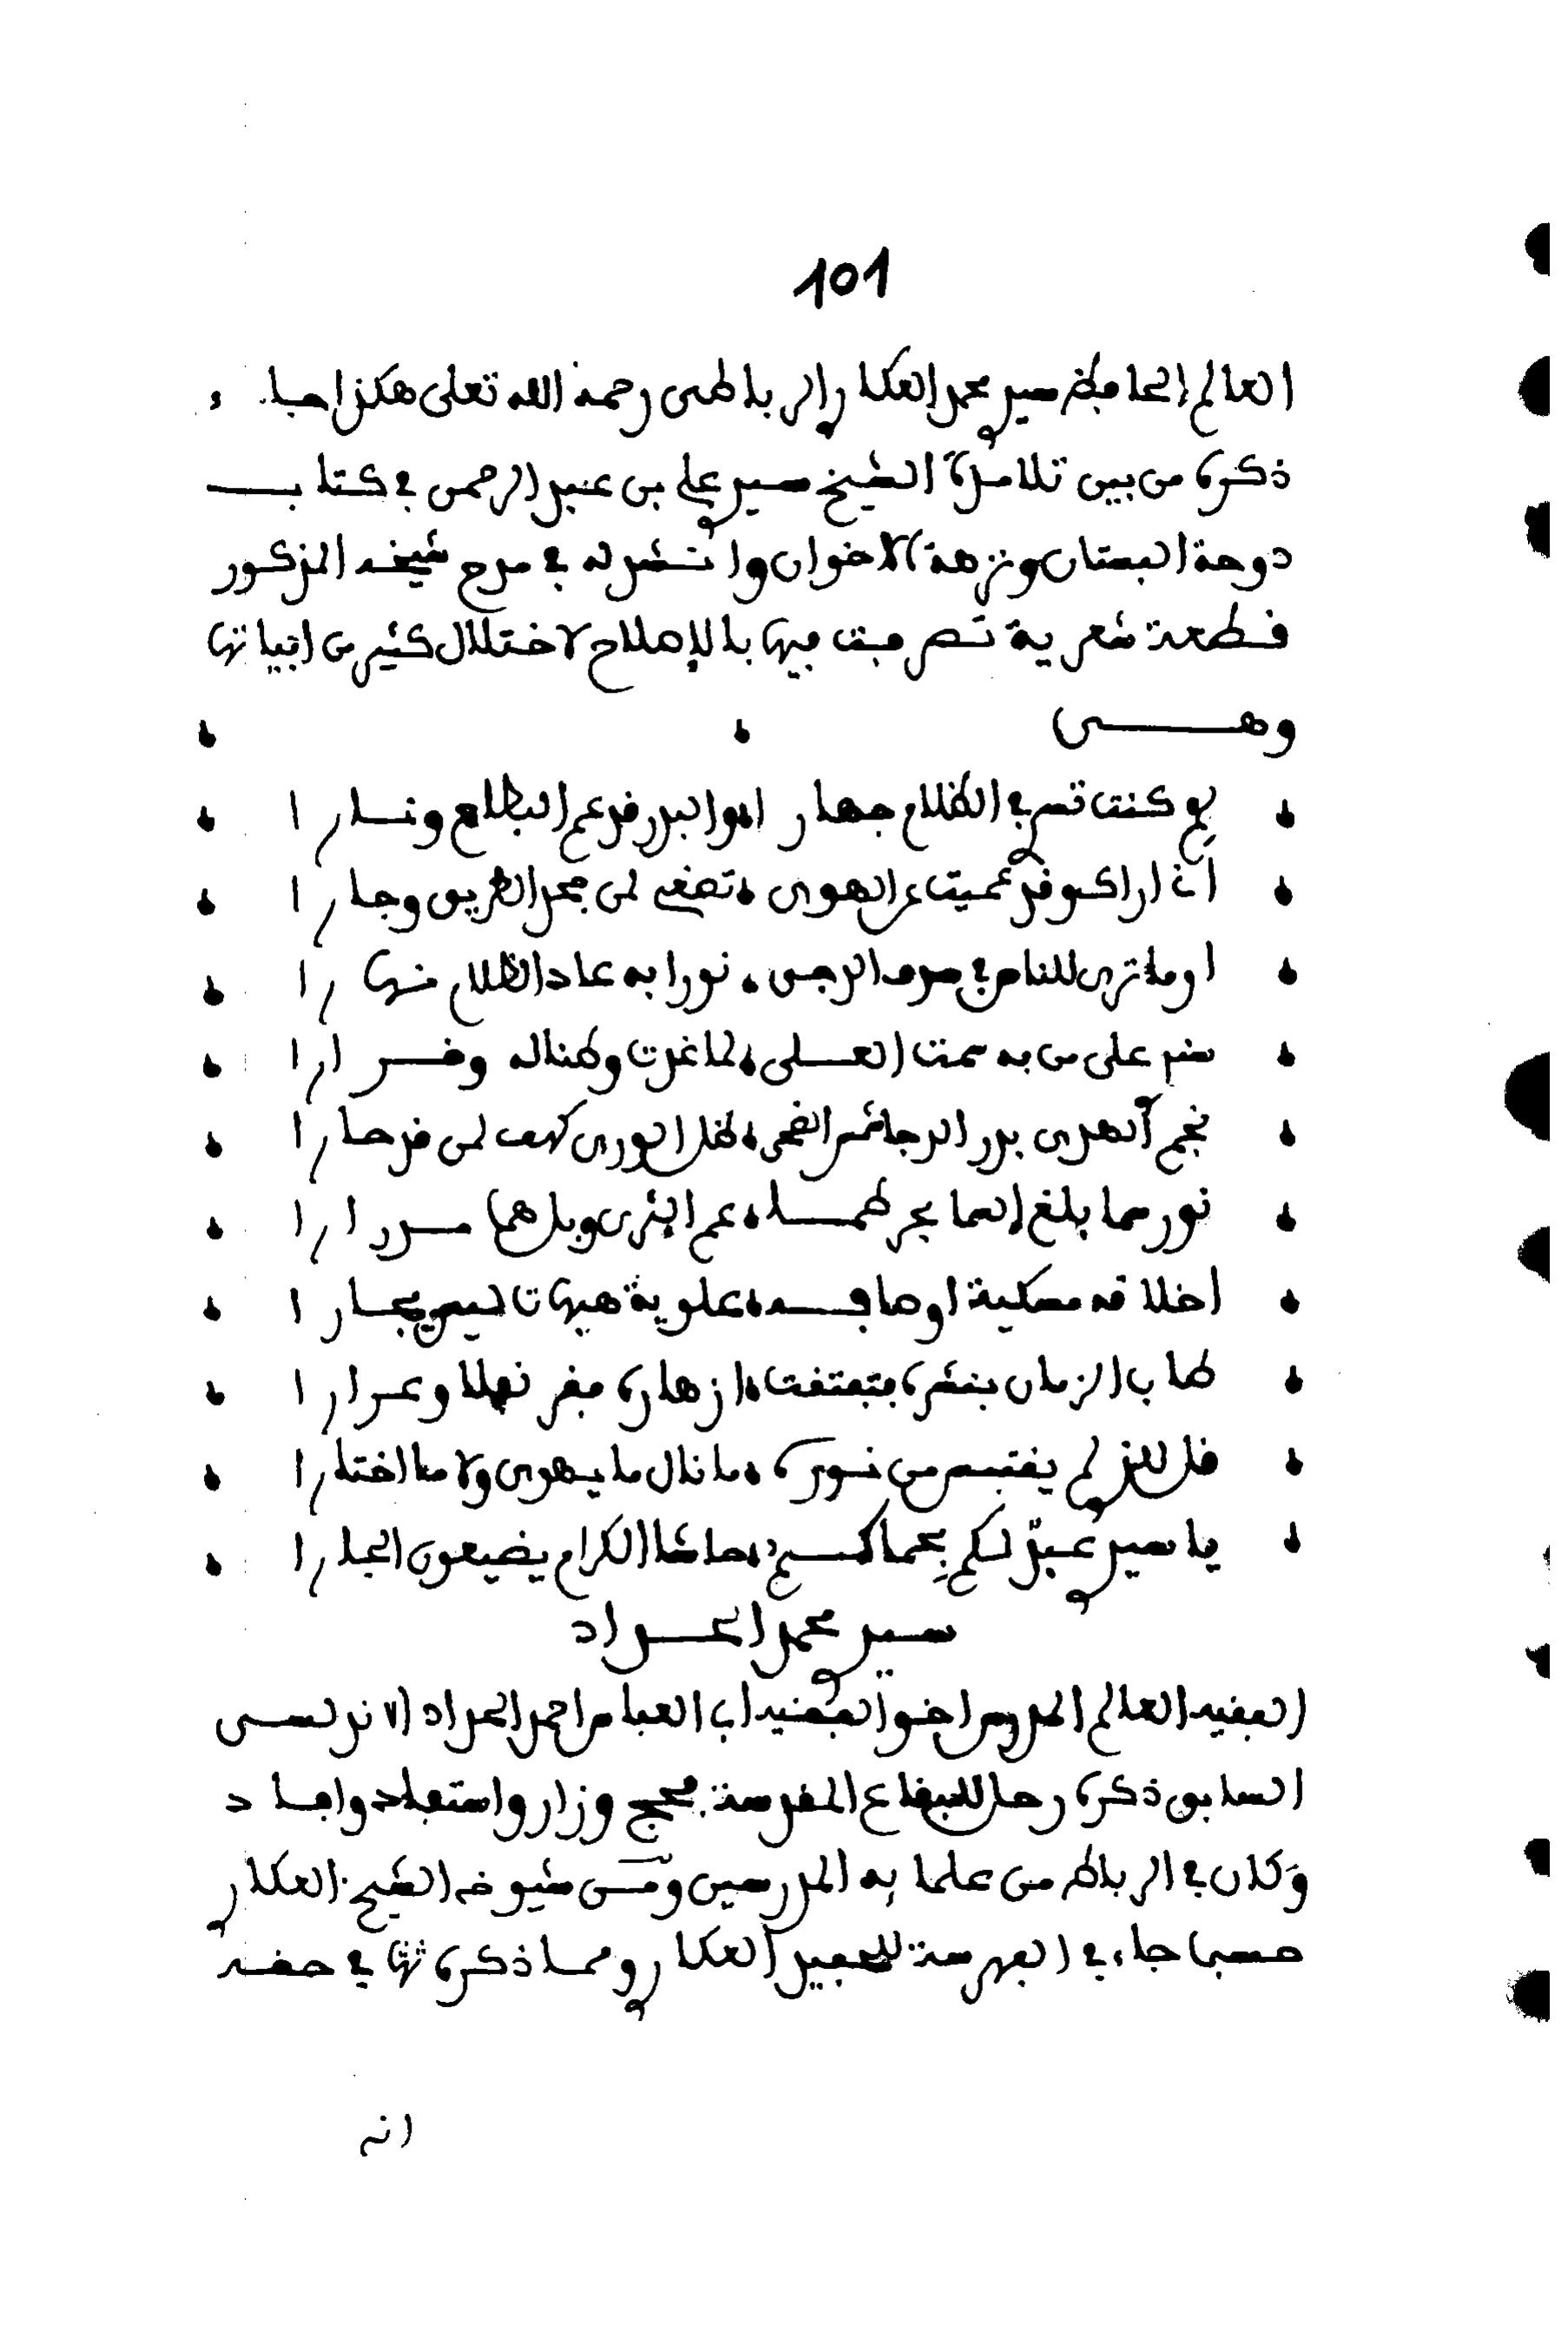 101
العالم الحافظ سيدي محمد العكاري الرباطي رحمه الله تعلى هكذا جاء
ذكره من بين تلامذة الشيخ سيدي علي بن عبد الرحمن في كتاب
دوحة البستان ونزهة الاخوان وانشد له في مدح شيخه المذكور
قطعة شعرية تصرفت فيها بالاصلاح لاختلال كثير من ابياتها
وهي
لم كنت تسري في الظلام جهارا اوا لبدر قد عم البطاح ونارا
اني اراك وقد عميت عن الهوى تقفي لمن جحد الطريق وجارا
او ما ترى للناس في صرف الدجى نورا به عاد الظلام نهارا
سر على من به سمت العلى لما غدت وطنا له وقرارا
نجم الهدى بدر الدجا شمس الضحى ظل الورى كهف لمن قد حارا
نور سما بلغ السما بحر طما عم الثرى وبل هما مدرارا
اخلاقه مسكية اوصافه علوية هيهات ليس يجارا
طاب الزمان بنشره فتفتقت ازهاره فغدا نهلا وعرارا
قل للذي لم يقتبس من نوره ما نال ما يهوى ولا ما اختارا
يا سيدي عبد لكم بحماكم حاشا الكرام يضيعون الجارا
سيدي محمد الحداد
الفقيه العالم المدرس اخو الفقيه ابي العباس احمد الحداد الاندلسي
السابق ذكره رحل للبقاع المقدسة فحج وزار واستفاد وافاد
وكان في الرباط من علمائه المدرسين ومن شيوخه الشيخ العكاري
حسبما جاء في الفهرسة للحفيد العكاري ومما ذكره ثم في حقه
انه